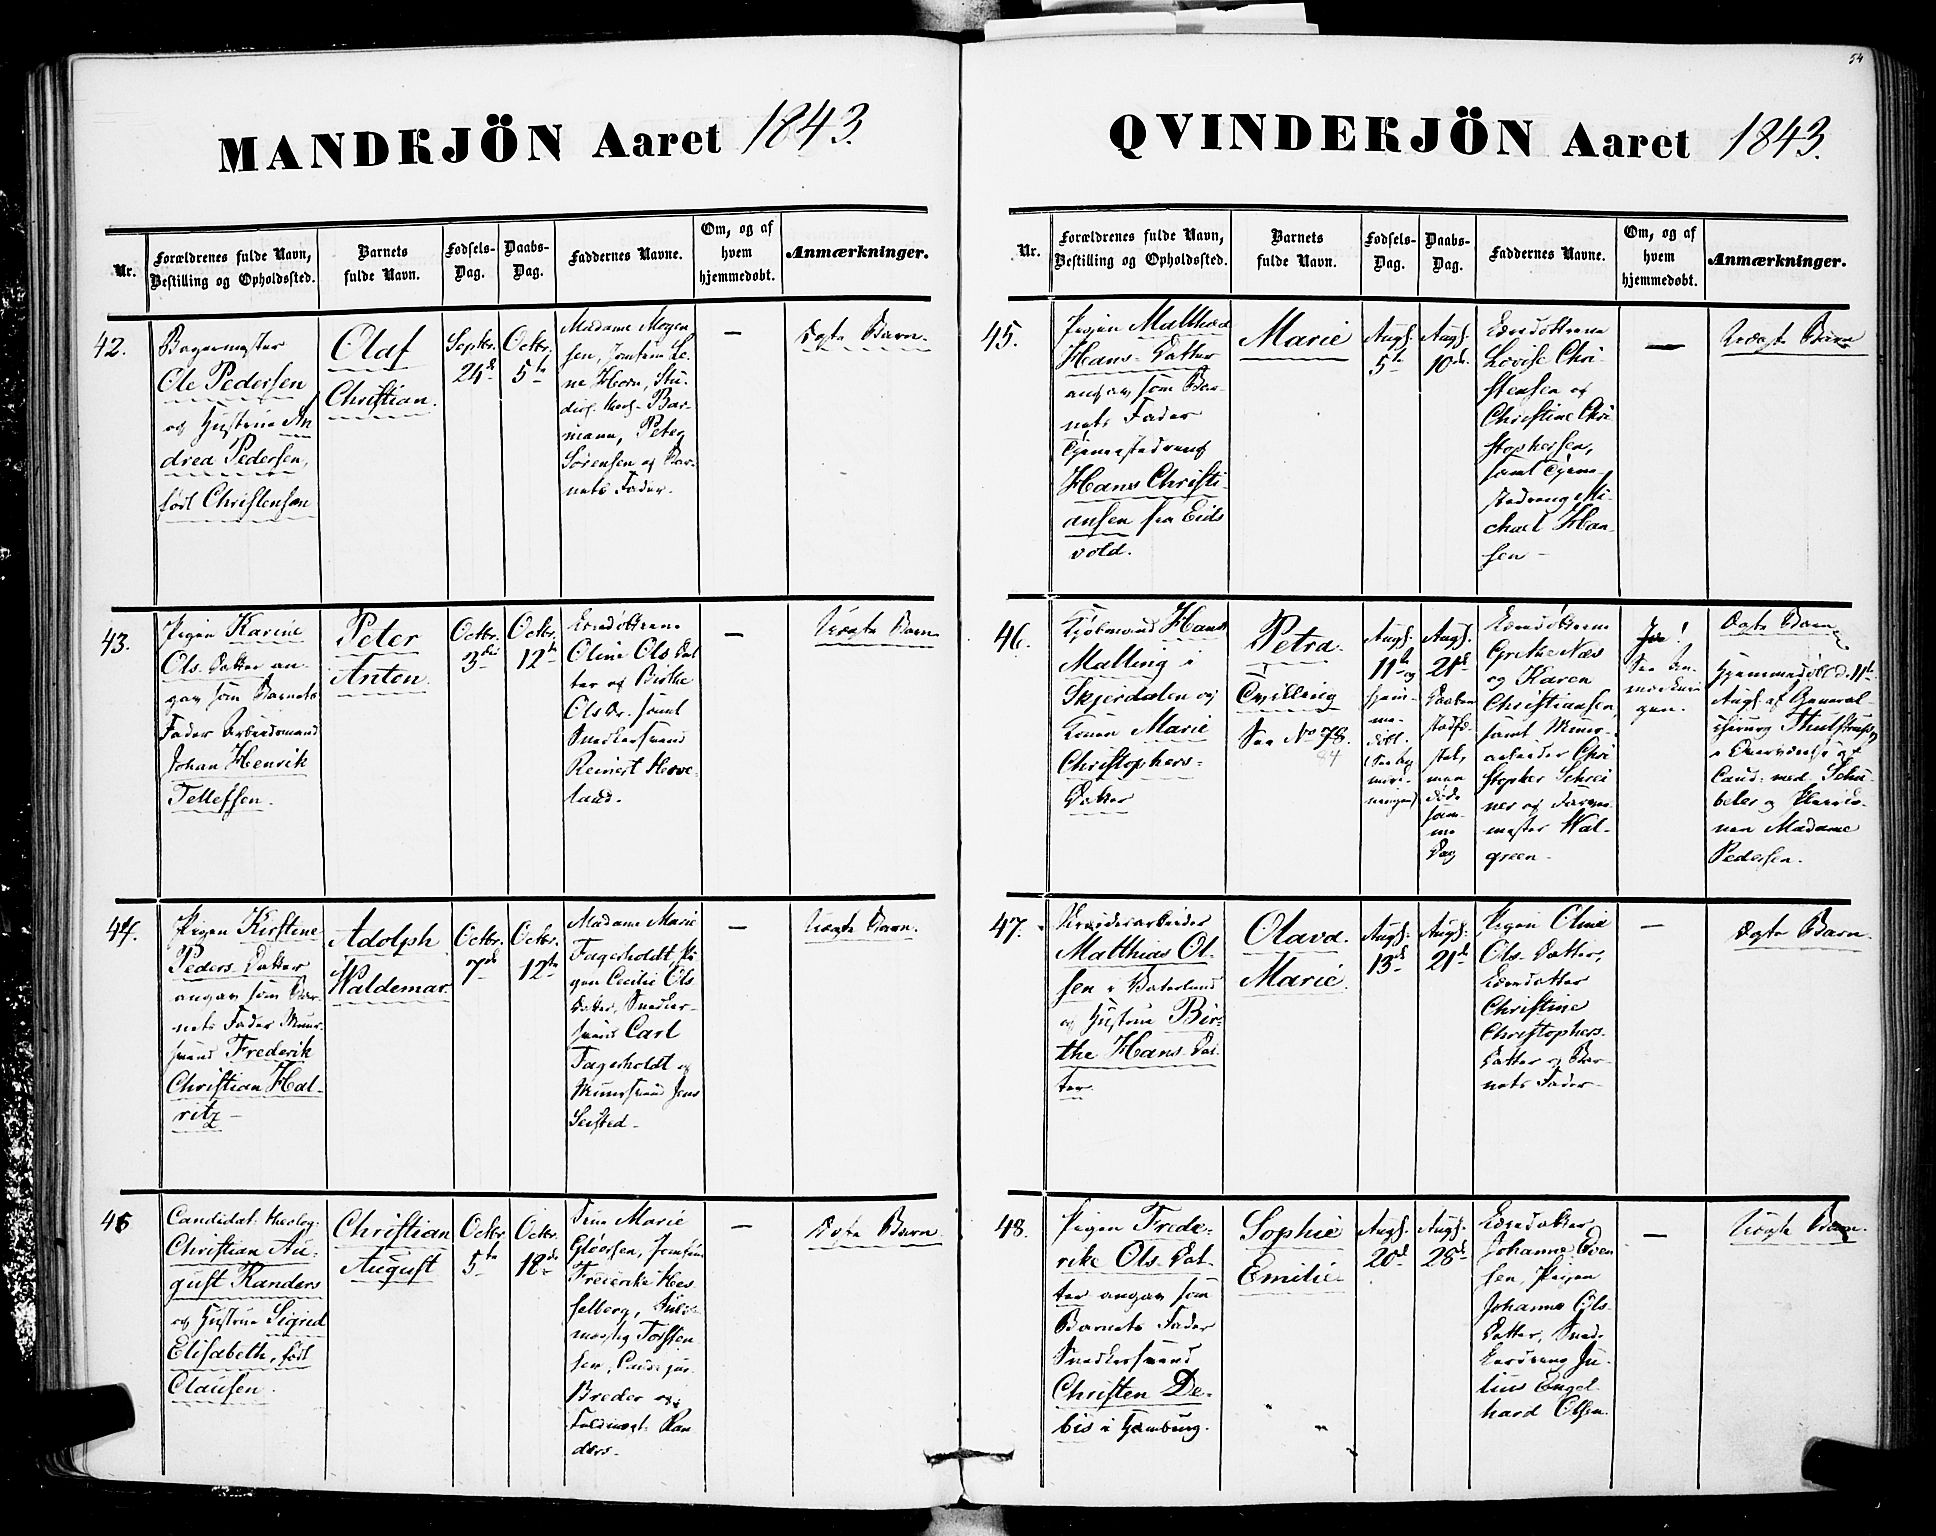 54
MANDKJÖN Aaret 1843.
Nr.
Forældrenes fulde Navn,
Bestilling og Opholdssted.
Barnets
fulde Navn.
Fødsels-
Dag.
Daabs-
Dag.
Faddernes Navne.
Om, og af
hvem
hjemmedøbt.
Anmærkninger.
42.
Bagermester
Ole Pedersen
og Hustrue An
drea Pedersen,
født Christensen
Olaf
Christian.
Septbr.
24d
Octbr.
5te
Madame Mogen
sen, Jomfrue Le-
ne Horn, Stu-
Bar-
mann, Peter
Sørensen og Bar-
nets Fader.
—
Ægte Barn.
43.
Pigen Karine
Ols. Datter an-
gav som Barnets
Fader Arbeidsmand
Johan Henrik
Tellefsen.
Peter
Anton.
Octbr.
3die
Octbr.
12te
Eendøttrene
Oline Ols Dat
ter og Birthe
Ols Dr. samt
Snedkersvend
Reinert Herve
land.
—
Uægte Barn
44.
Pigen Kirstine
Peders. Datter
angav som Bar-
nets Fader Muur-
svend Frederik
Christian Hal-
ritz —
Adolph
Waldemar
Octbr.
7de
Octbr.
12te
Madame Marie
Fagerholdt, Pi-
gen Cecilie Ols
Datter, Snedker-
svend Carl
Fagerholdt og
Muursvend Jens
Seisted —
—
Uægte Barn.
45
Candidat: theolog:
Christian Au-
gust Randers
og Hustrue Sigrid
Elisabeth, født
Clausen.
Christian
August
Octbr
5te
Octbr.
18de
Frue Marie
Gløersen, Jomfrue
Frederikke Hes
selberg,
Torsten
sen, Cand: jur:
Breder og
Fuldmægt: Ran
ders —
—
Ægte Barn.
QVINDEKJÖN Aaret 1843.
Nr.
Forældrenes fulde Navn,
Bestilling og Opholdssted.
Barnets
fulde Navn.
Fødsels-
Dag.
Daabs-
Dag.
Faddernes Navne.
Om, og af
hvem
hjemmedøbt.
Anmærkninger.
45.
Pigen Malthea
Hans-Datter
angav som Bar-
nets Fader
Tjenestedreng
Hans Christi-
ansen fra Eids
vold.
Marie
Augs.
5te
Augs.
10de.
Eendøttrene
Lovise Chri-
stensen og
Christine Chri
stophersen,
samt Tjene-
stedreng Mi-
chael Han
sen —
—
Uægte Barn
46.
Kjøbmand Hans
Malling i
Skjerdalen og
Konen Marie
Christophers-
Datter
Petra.
Tvilling
See No 78.
44
Augs.
11te og
hjem-
me-
døbt.
Augs.
21de
Daaben
stadfæ-
stet,
man
døde
sam-
me
Dag
Eendøttrene
Grethe Næs
og Karen
Christiansen,
samt Muur-
arbeider Chri
stopher Schrei
ner og Farver-
mester Wal-
green —
Ja!
See An-
mærknin
gen.
Ægte Barn
Hjemmedøbt d. 11te
Augs. af General-
chirurg Thulstrup
i Overværelse af
Cand: med. Schi-
beler og Pleiers-
nen Madame
Pedersen.
47.
Matthias Ol-
sen i Vaterland
og Hustrue Bir-
the Hans-Dat-
ter.
Olava.
Marie.
Augs.
13de
Augs.
21de
Pigen Oline
Ols. Datter,
Eendatter
Christine
Christophers.
Datter og Bar-
nets Fader —
—
Ægte Barn.
48.
Pigen Frede-
rike Ols-Dat-
ter angav som
Barnets Fader
Snedkersvend
Christen De-
bis i Hamburg.
Sophie
Emilie
Augs.
20de
Augs.
28de
Eendatter
Johanne Even
sen, Pigen
Johanne Ols-
Datter, Sned-
kerdreng Ju-
lius Engel-
hard Olsen.
—
Uægte Barn.